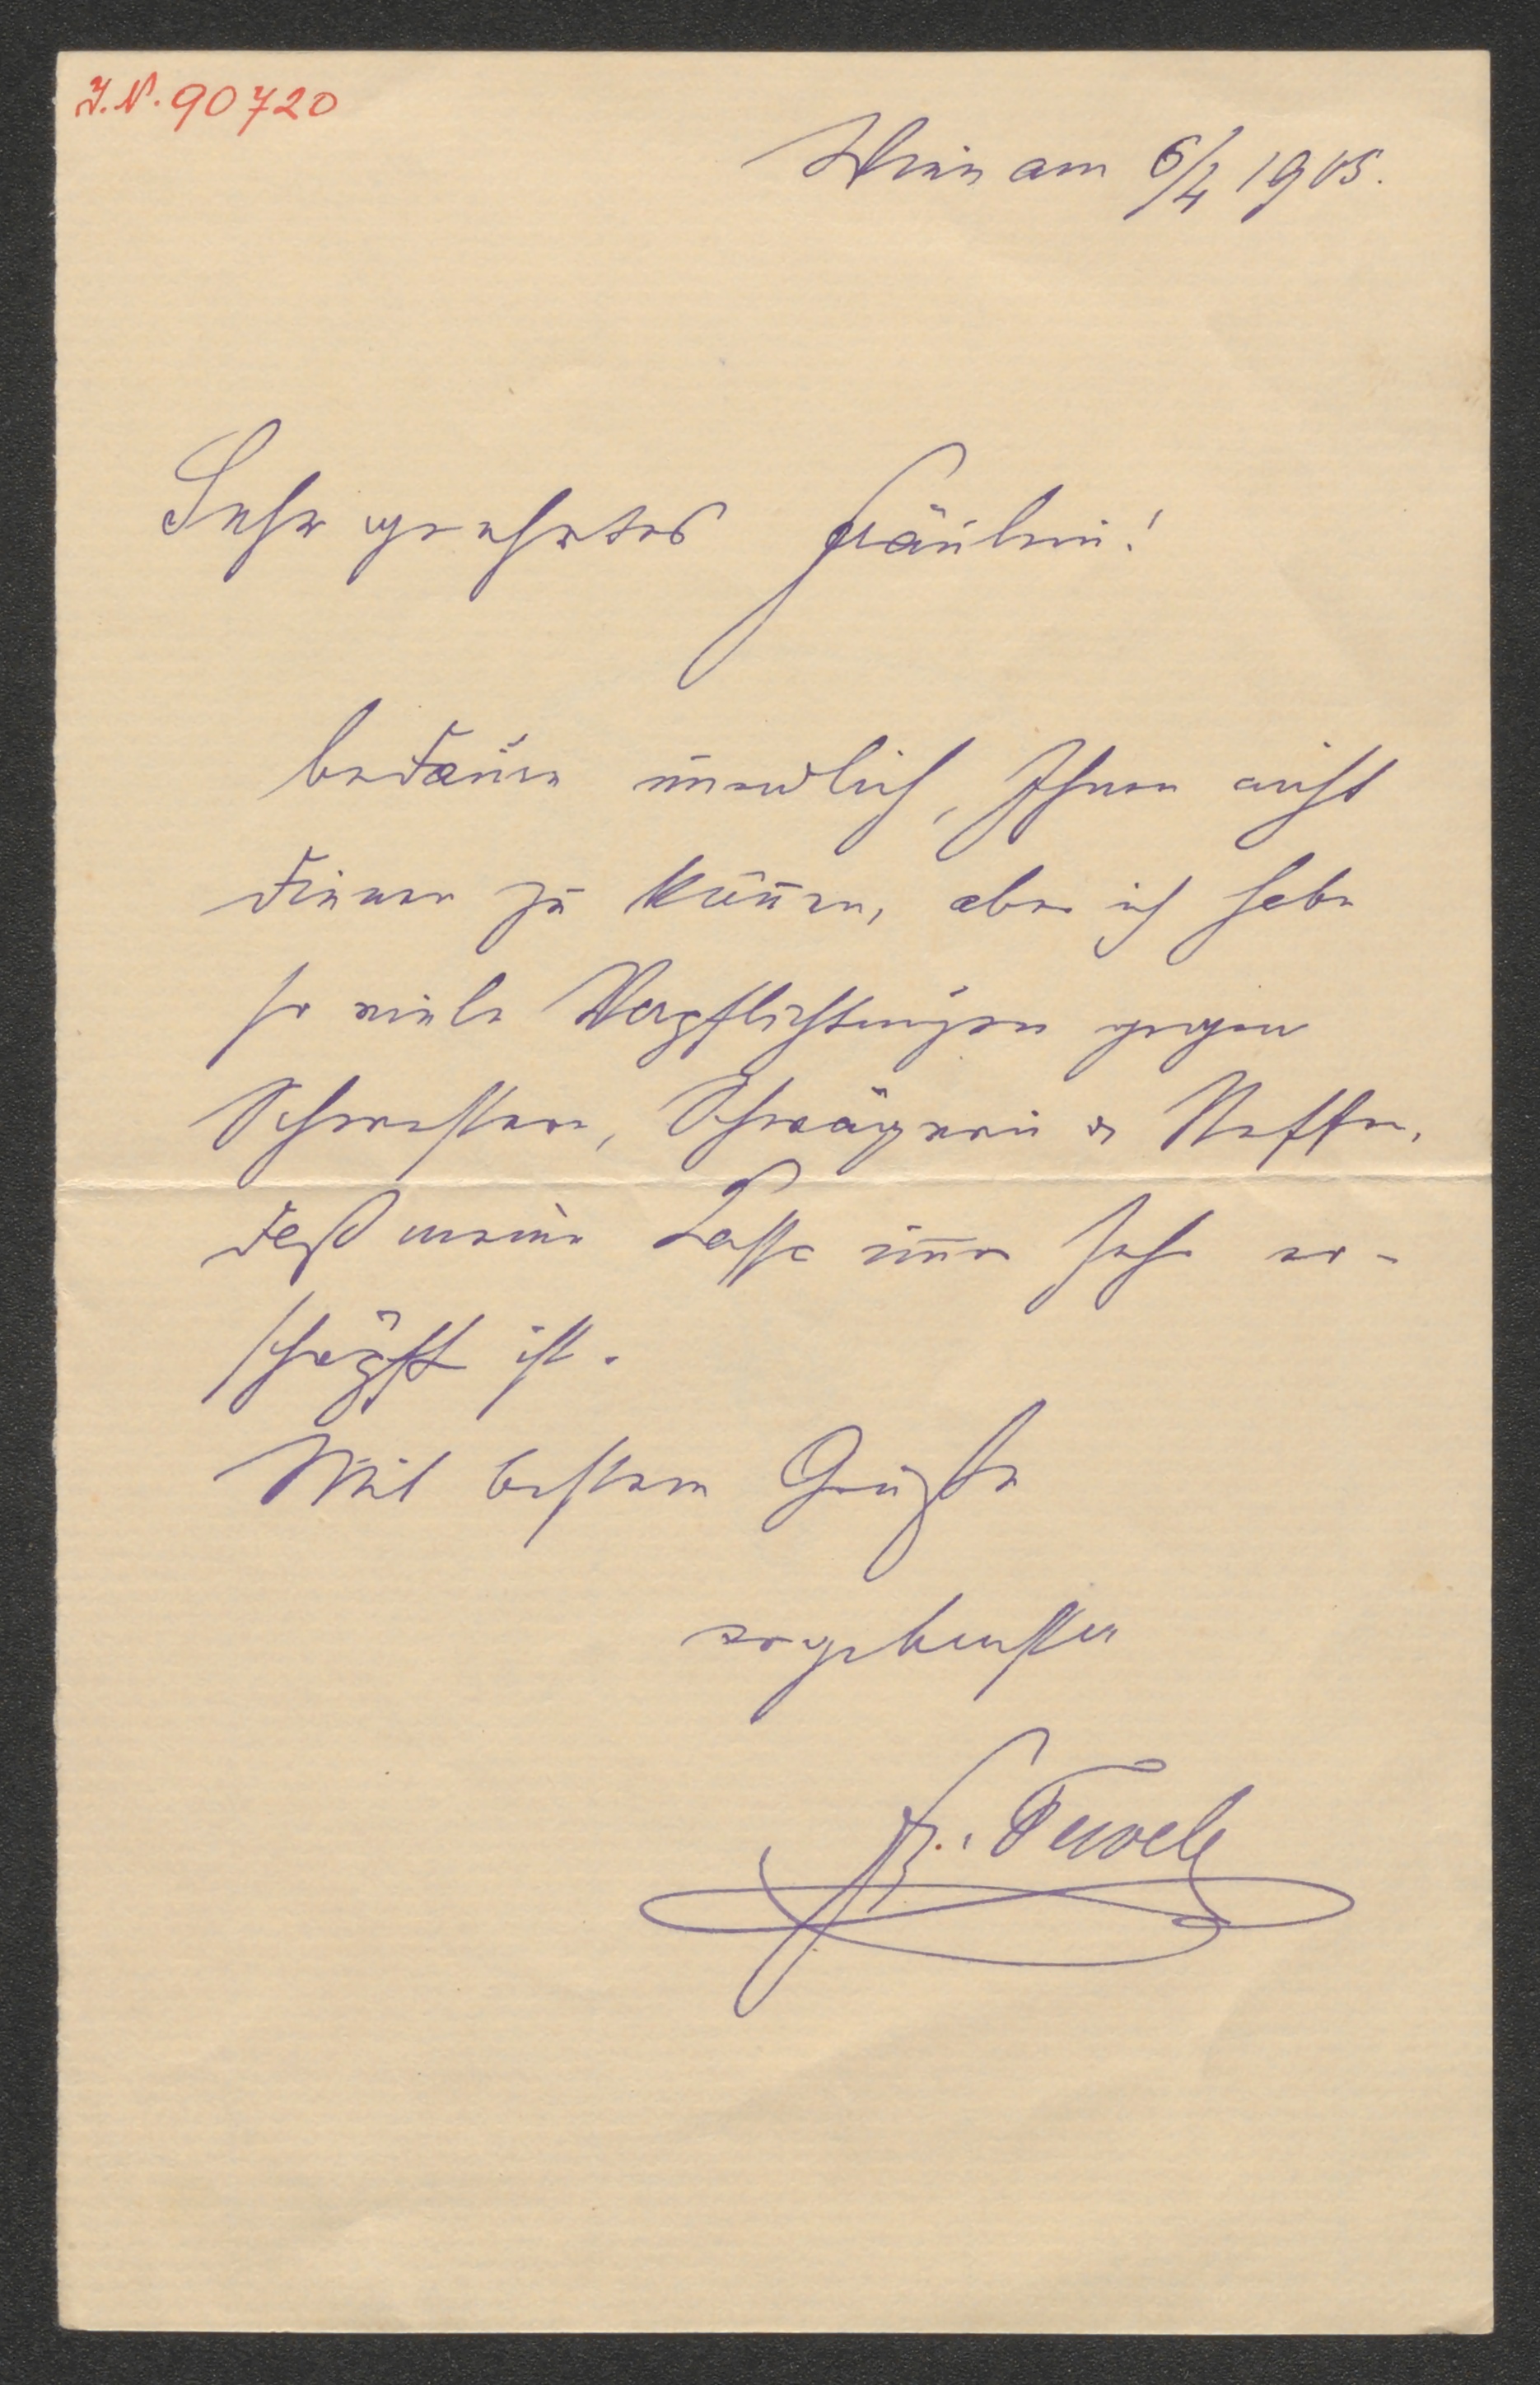 I.N. 90720
Wien am 6/4 1905.
Sehr geehrtes Fräulein!
bedaure unendlich, Ihnen nicht
dienen zu können, aber ich habe
so viele Verpflichtungen gegen
Schwestern, Schwägerin & Neffen,
daß meine Cassa immer sehr er-
schöpft ist.
Mit bestem Gruße
ergebenster
Fr.